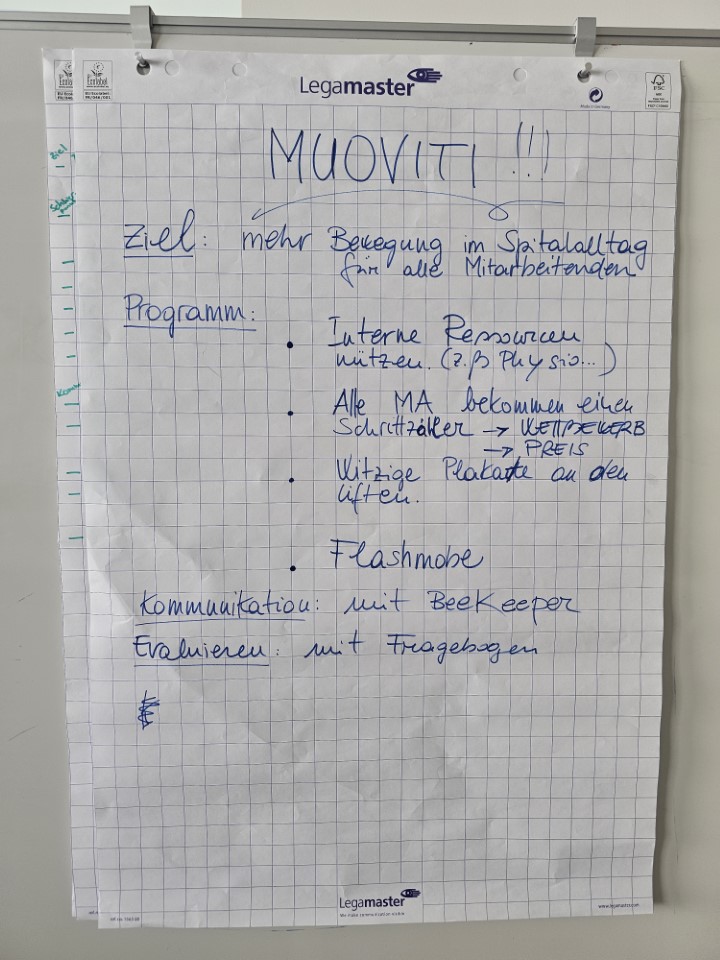 Legamaster
MUOVITI !!!
Ziel: mehr Bewegung im Spitalalltag
für alle Mitarbeitenden
Programm:
• Interne Ressourcen
nützen. (z.B Physio...)
• Alle MA bekommen einen
Schrittzähler → WETTBEWERB
→ PREIS
• Witzige Plakate an den
liften.
• Flashmobe
Kommunikation: mit BeeKeeper
Evaluieren: mit Fragebogen
Legamaster
www.legamaster.com
Ziel